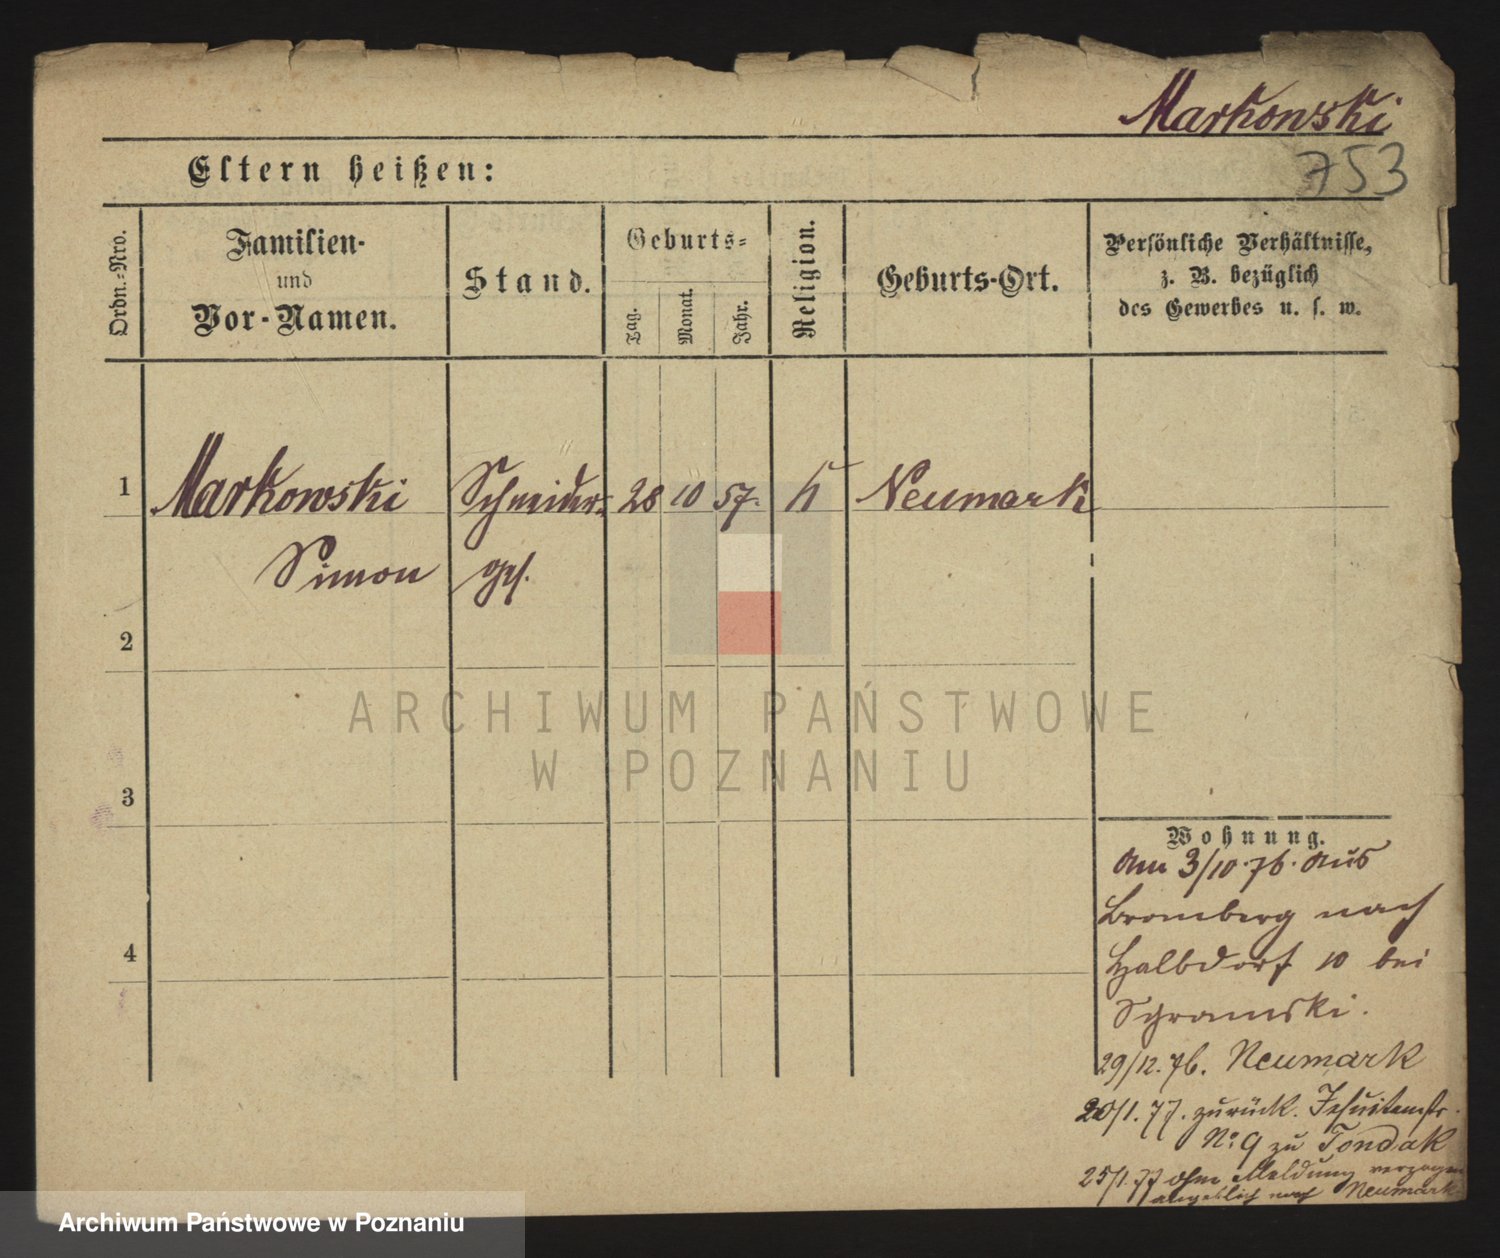 Markowski
753
Eltern heißen:
Ordn.-Nro.
Familien-
und
Vor-Namen.
Stand.
Geburts-
Tag.
Monat.
Jahr.
Religion.
Geburts-Ort.
Persönliche Verhältnisse,
z. B. bezüglich
des Gewerbes u. s. w.
1 Markowski Schneider- 28 10 57. k Neumark
Simon ges.
2
3
4
Wohnung.
Am 3/10.76. aus
Bromberg nach
Halbdorf 10 bei
29/12.76. Neumark
20/1.77. zurück. Jesuitenstr.
No 9 zu Tondak
25/1.77 ohne Meldung verzogen
angeblich nach Neumark
ARCHIWUM PAŃSTWOWE
W POZNANIU
Archiwum Państwowe w Poznaniu